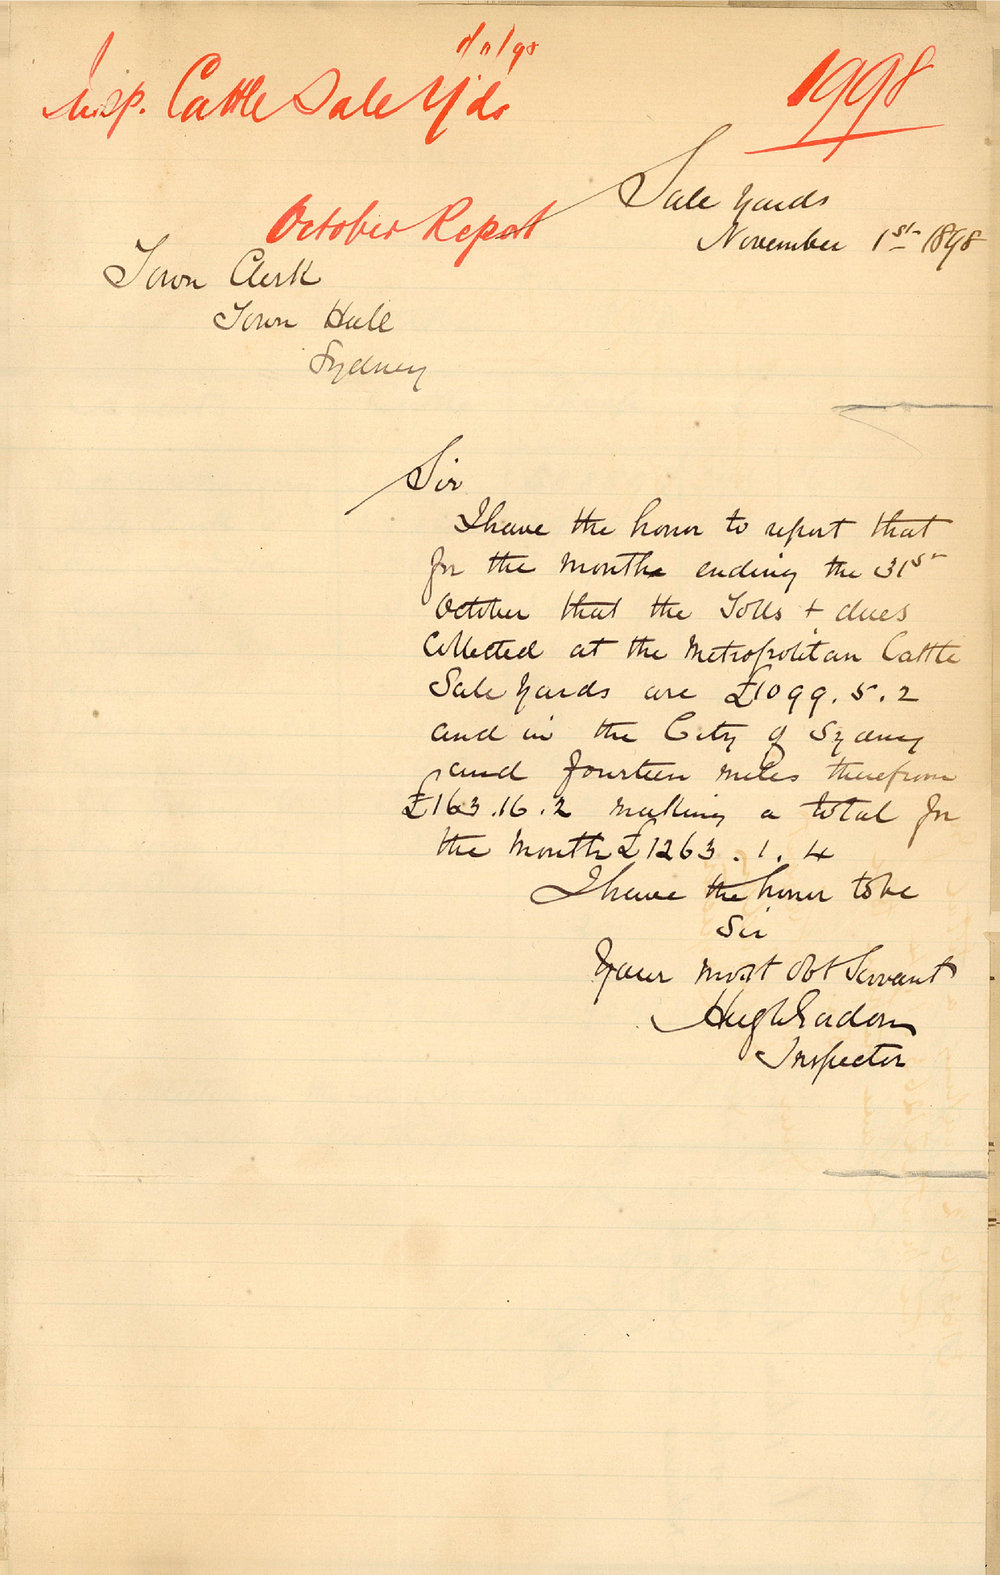 1/11/98
Insp. Cattle Sale Yds
1998
Sale Yards
November 1st 1898
October Report
Town Clerk
Town Hall
Sydney
Sir
I have the honor to report that
for the month ending the 31st
October that the Tolls + dues
Collected at the Metropolitan Cattle
Sale Yards are £1099.5.2
and in the City of Sydney
and fourteen miles therefrom
£163.16.2 making a total for
the Month £1263.1.4
I have the honor to be
Sir
Your most Obt Servant
Hugh
Inspector